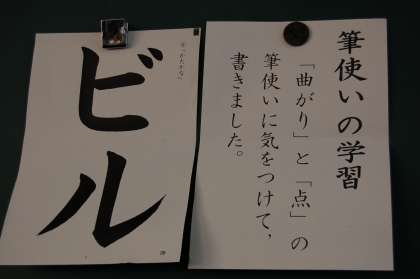 筆使いの学習
「曲がり」と「点」の
筆使いに気をつけて，
書きました。
ビル